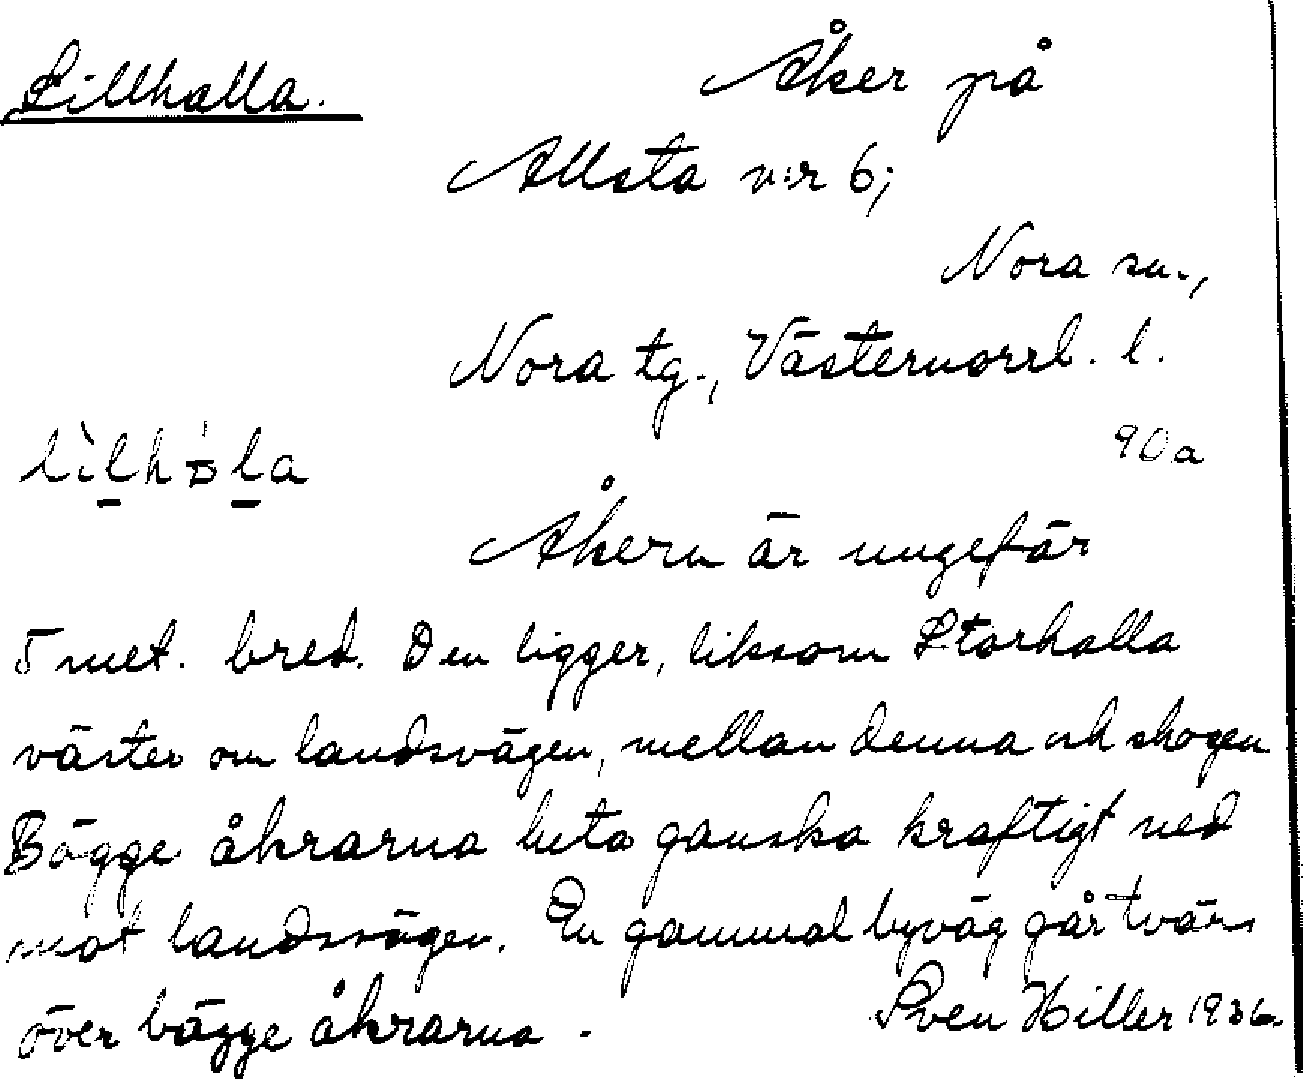 Lillhalla.
Åker på
Allsta n:r 6;
Nora sn.,
Nora tg., Västernorrl. l.
90a
Åkern är ungefär
5 met. bred. Den ligger, liksom Storhalla
väster om landsvägen, mellan denna och skogen
Bägge åkrarna luta ganska kraftigt ned
mot landsvägen. En gammal byväg går tvärs
över bägge åkrarna.
Sven Hiller 1936.